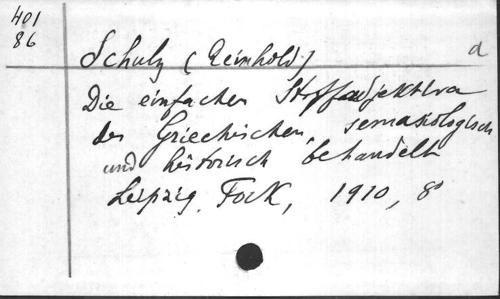 401
86
Schulz (Reinhold) a
Die einfachen Stoffadjektiva
des Griechischen, semasiologisch
und historisch behandelt
Leipzig, Fock, 1910, 8°